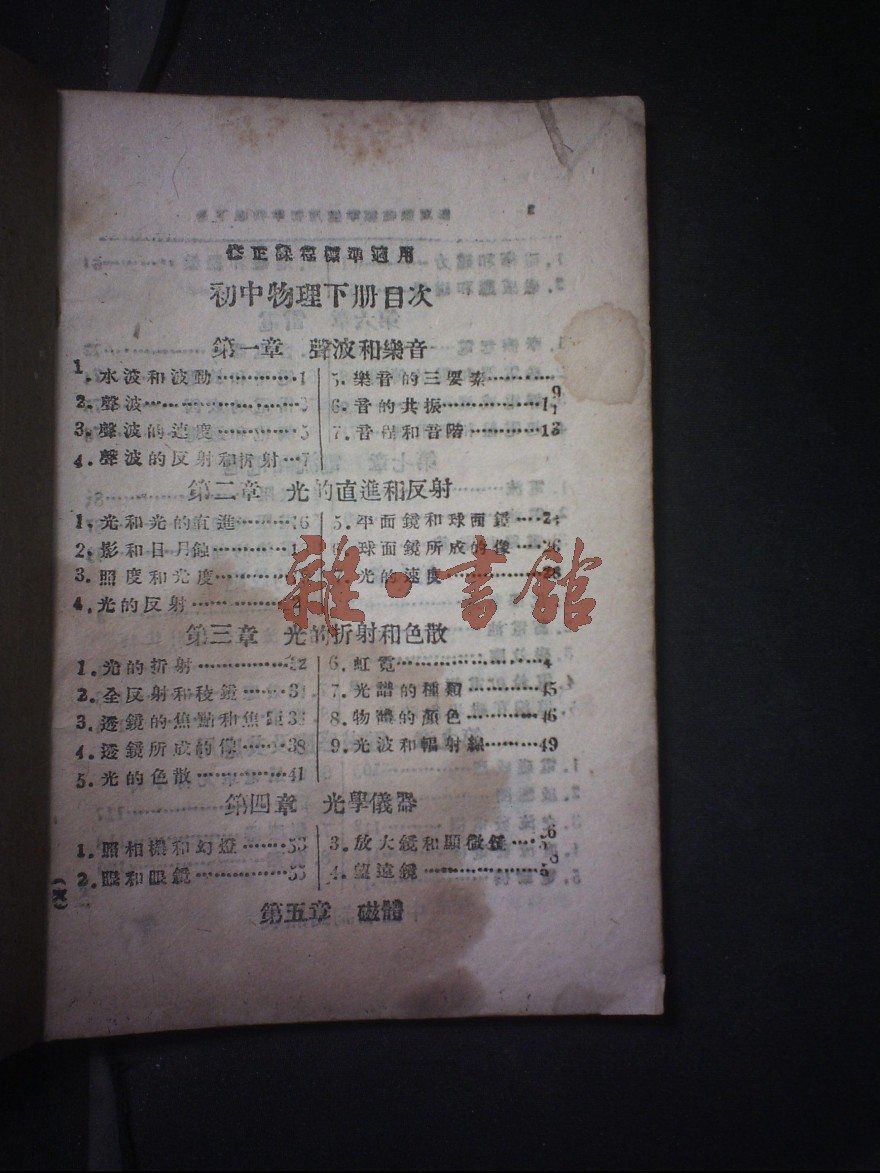 修正課程標準適用
初中物理下册目次
第一章 聲波和樂音
1. 水波和波動…………1
2. 聲波……………3
3. 聲波的速度………5
4. 聲波的反射和折射…7
5. 樂音的三要素………9
6. 音的共振…………11
7. 音程和音階………13
第二章 光的直進和反射
1. 光和光的直進………16
2. 影和日月蝕………
3. 照度和光度………
4. 光的反射…………
5. 平面鏡和球面鏡…24
6. 球面鏡所成的像…26
7. 光的速度………28
第三章 光的折射和色散
1. 光的折射…………32
2. 全反射和稜鏡……
3. 透鏡的焦點和焦距
4. 透鏡所成的像……38
5. 光的色散…………41
6. 虹霓……………
7. 光譜的種類………45
8. 物體的顏色………46
9. 光波和輻射線………49
第四章 光學儀器
1. 照相機和幻燈……53
2. 眼和眼鏡…………55
3. 放大鏡和顯微鏡…56
4. 望遠鏡…………58
第五章 磁體
雜·書館